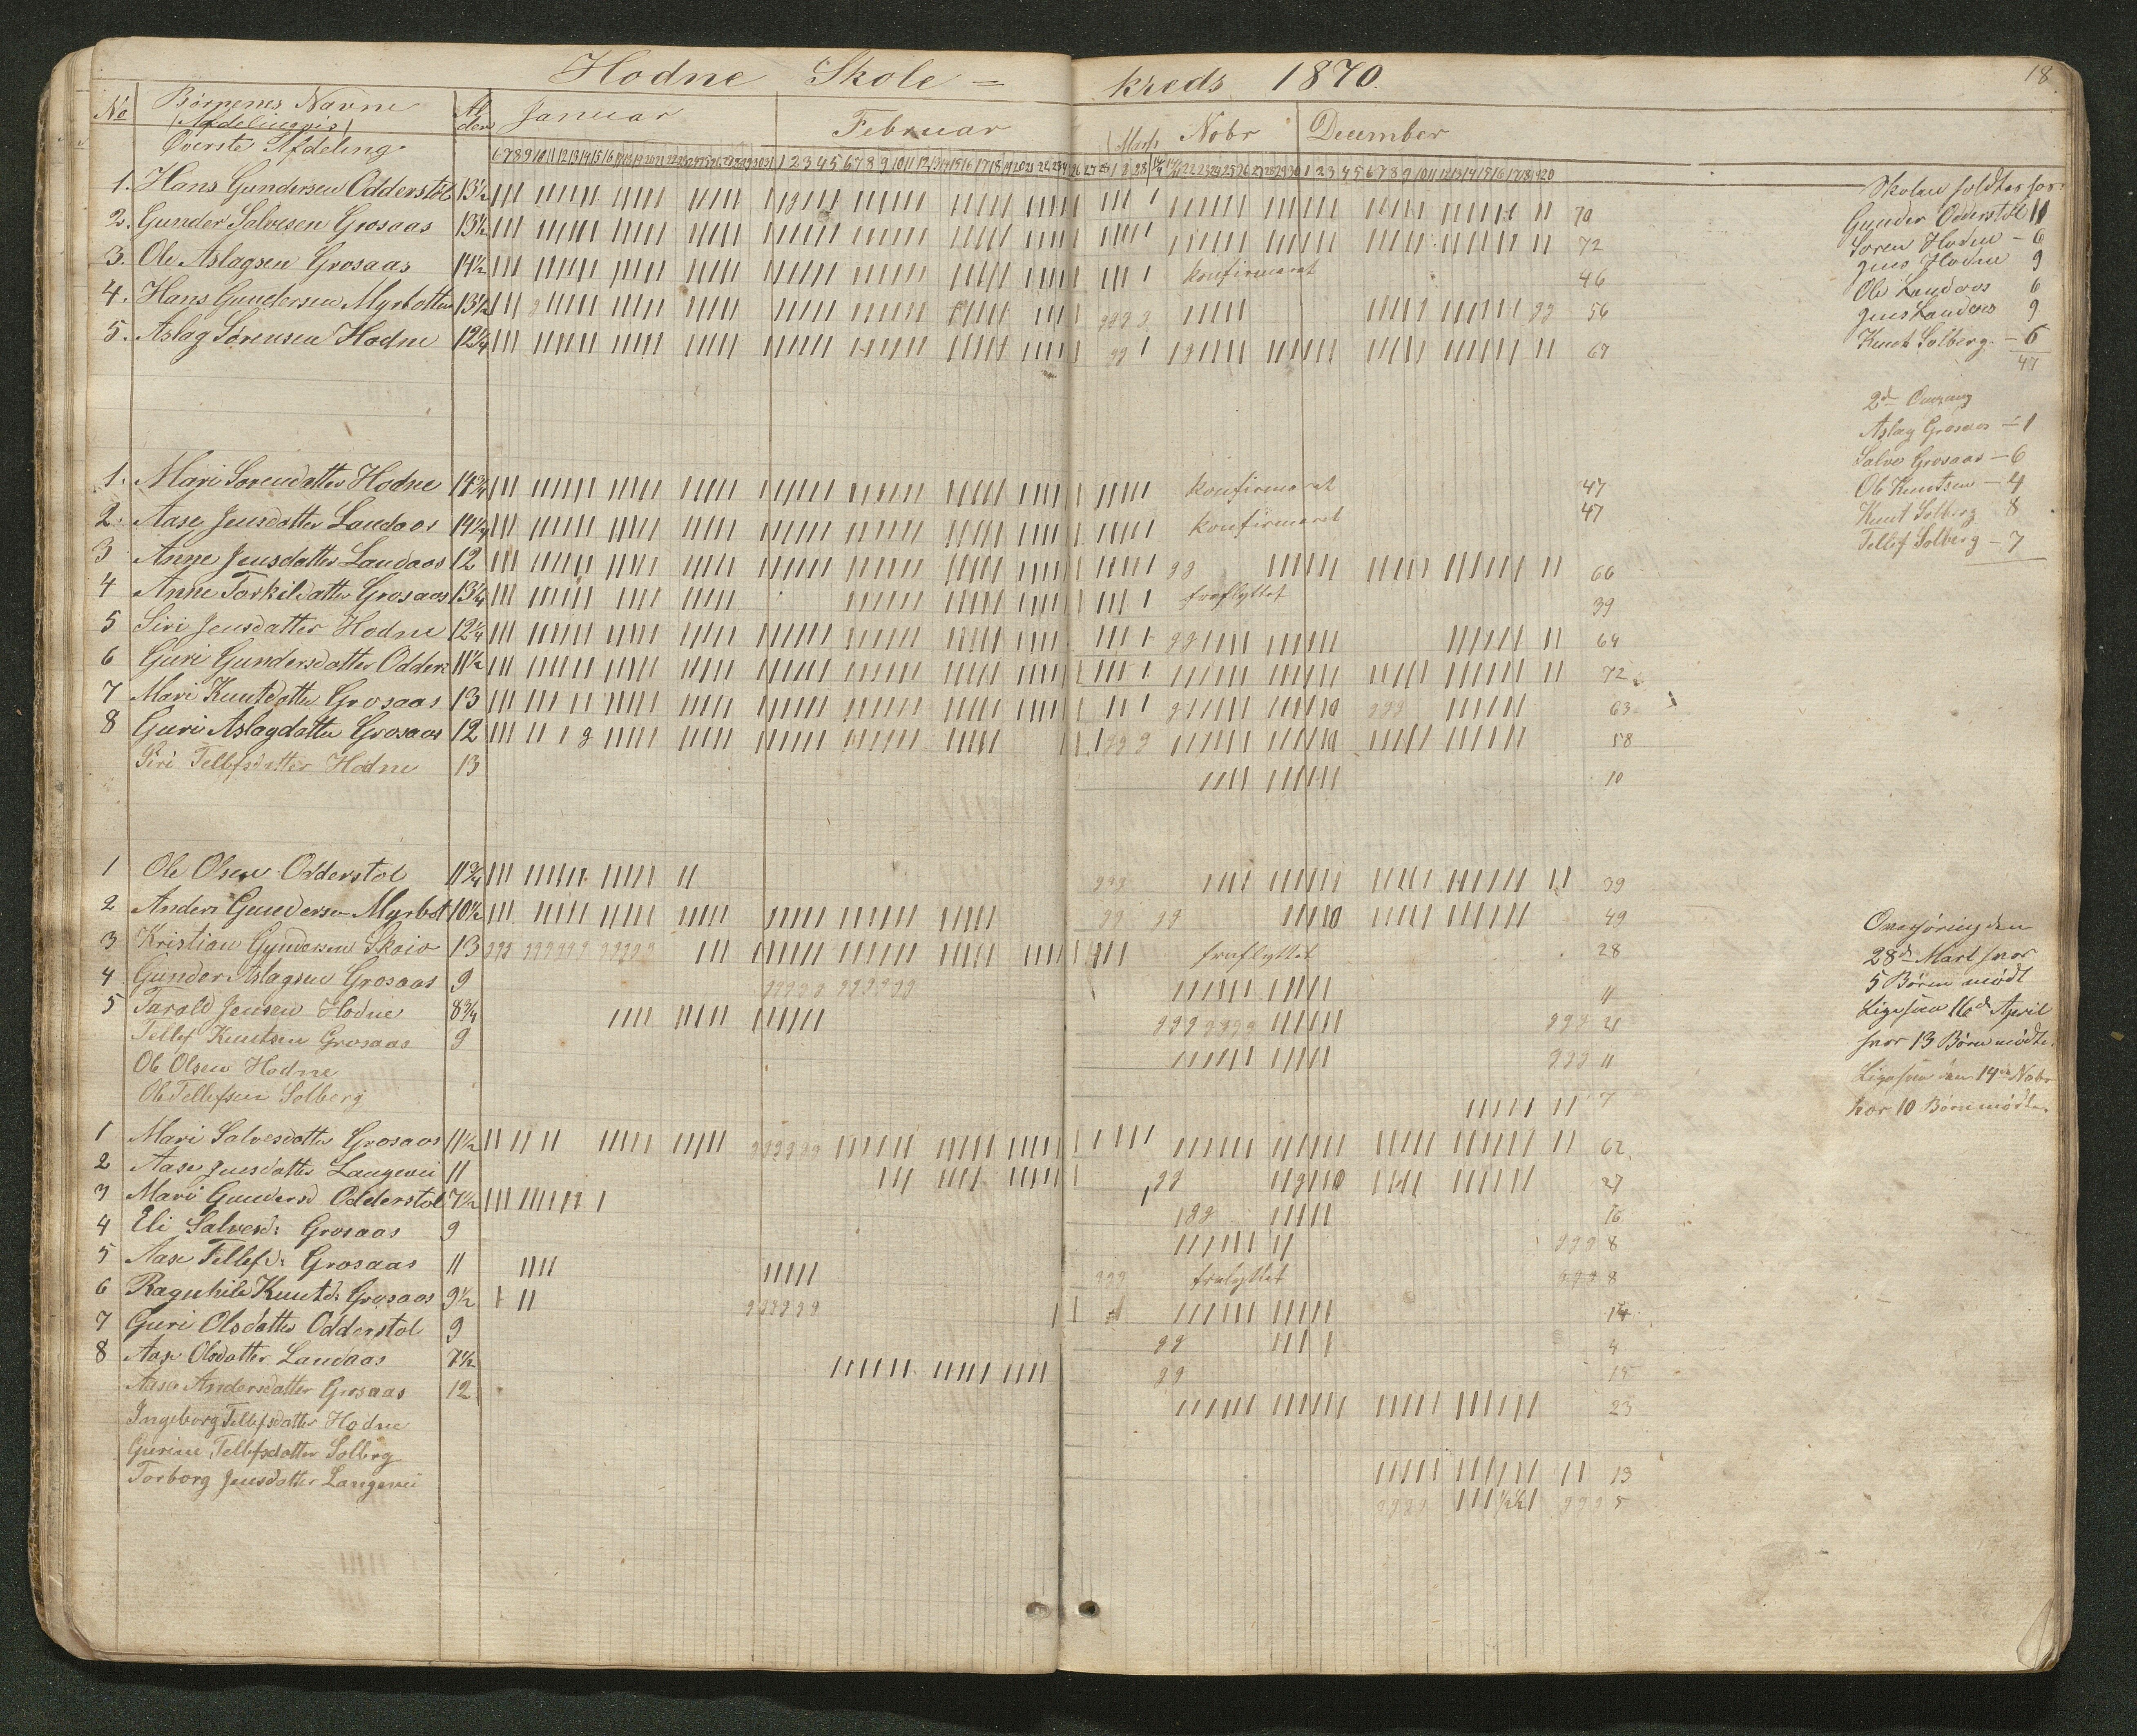 Hodne Skole = kreds 1870.
18
No Børnenes Navne Al Januar Februar Marts Novbr December
(Afdelingvis) der
Øverste Afdeling
6 7 8 9 10 11 12 13 14 15 16 17 18 19 20 21 22 23 24 25 26 27 28 29 30 31 1 2 3 4 5 6 7 8 9 10 11 12 13 14 15 16 17 18 19 20 21 22 23 24 26 27 28 1 2 28 22 23 24 25 26 27 28 29 30 1 2 3 4 5 6 7 8 9 10 11 12 13 14 15 16 17 18 19 20
1. Hans Gundersen Odderstøl 13½ 70
2. Gunder Salvesen Grosaas 13½ 72
3. Ole Aslagsen Grosaas 14½ konfirmeret 46
4. Hans Gundersen Myrbotten 13½ 56
5. Aslag Sørensen Hodne 12¼ 67
1. Mari Sørensdatter Hodne 14¾ konfirmeret 47
2. Aase Jensdatter Landaas 14¼ konfirmeret 47
3 Anne Jensdatter Landaas 12 66
4 Anne Torkildatter Grosaas 13¼ fraflyttet 39
5 Siri Jensdatter Hodne 12¼ 64
6 Guri Gundersdatter Odders 11½ 72
7 Mari Knutsdatter Grosaas 13 63
8 Guri Aslagdatter Grosaas 12 58
Siri Tellefsdatter Hodne 13 10
1 Ole Olsen Odderstøl 11¾ 39
2 Anders Gundersen Myrbot 10½ 49
3 Kristian Gundersen Skaio 13 fraflyttet 28
4 Gunder Aslagsen Grosaas 9 11
5 Tarald Jensen Hodne 8¾ 21
Tellef Knutsen Grosaas 9 11
Ole Olsen Hodne
Ole Tellefsen Solberg 7
1 Mari Salvesdatter Grosaas 11½ 62
2 Aase Jensdatter Langevei 11 27
3 Mari Gundersd Odderstøl 7½ 16
4 Eli Salvesd: Grosaas 9 8
5 Aase Tellefd: Grosaas 11 fraflyttet 8
6 Ragnhild Knutd: Grosaas 9½ 14
7 Guri Olsdatter Odderstøl 9 4
8 Aase Olsdatter Landaas 7½ 15
Aase Andersdatter Grosaas 12 23
Ingeborg Tellefsdatter Hodne
Gurine Tellefsdatter Solberg 13
Torborg Jensdatter Langevei 5
Skolen holdtes hos:
Gunder Odderstøl 11
Søren Hodne - 6
Jens Hodne 9
Ole Landaas 6
Jens Landaas 9
Knut Solberg - 6
47
2d Omgang
Aslag Grosaas - 1
Salve Grosaas - 6
Ole Knutsen - 4
Knut Solberg 8
Tellef Solberg - 7
Overhøring den
28d Mart hvor
5 Børn mødt
Ligesaa 16d April
hvor 13 Børn mødte.
Ligesaa den 14de Novbr
hvor 10 Børn mødte.